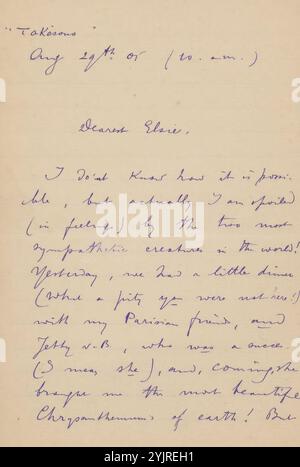 "Takasono"
Aug 29th. 05 (10. a.m.)
Dearest Elsie.
I do'nt know how it is possi-
ble, but actually I am spoiled
(in feeling) by the two most
sympathetic creatures in the world!
Yesterday, we had a little diner
(What a pity you were not here!)
with my Parisian friend, and
v. B, who was a succes
(I mean she), and, coming she
me the most beautiful
Chrysanthemums of earth! But
alamy
Image ID: 2YJREH1
www.alamy.com